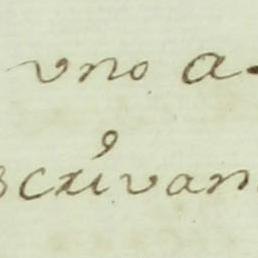 vno a
scrivan